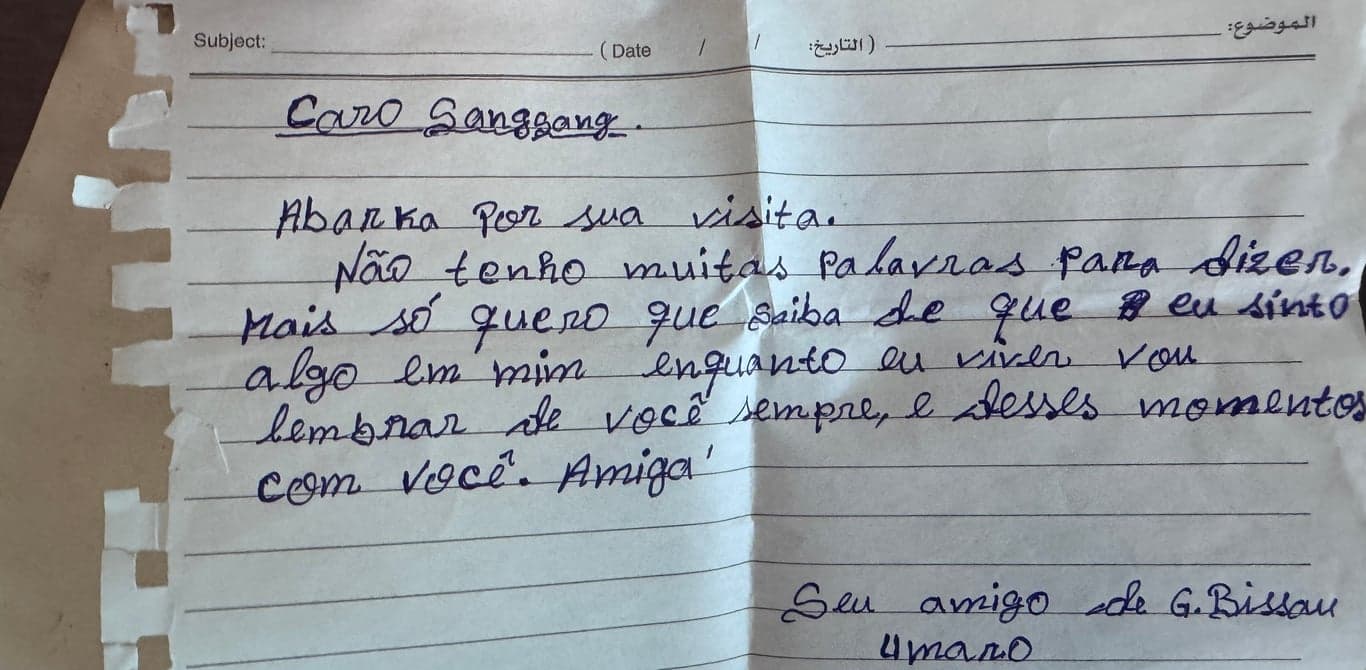 Subject: ( Date / / التاريخ: ) الموضوع:
Caro Sanggang.
Abarka Por sua visita.
Não tenho muitas palavras para dizer.
Mais só quero que saiba de que eu sinto
algo em mim enquanto eu viver vou
lembrar de você sempre, e desses momentos
com você. Amiga'
Seu amigo de G. Bissau
Umaro